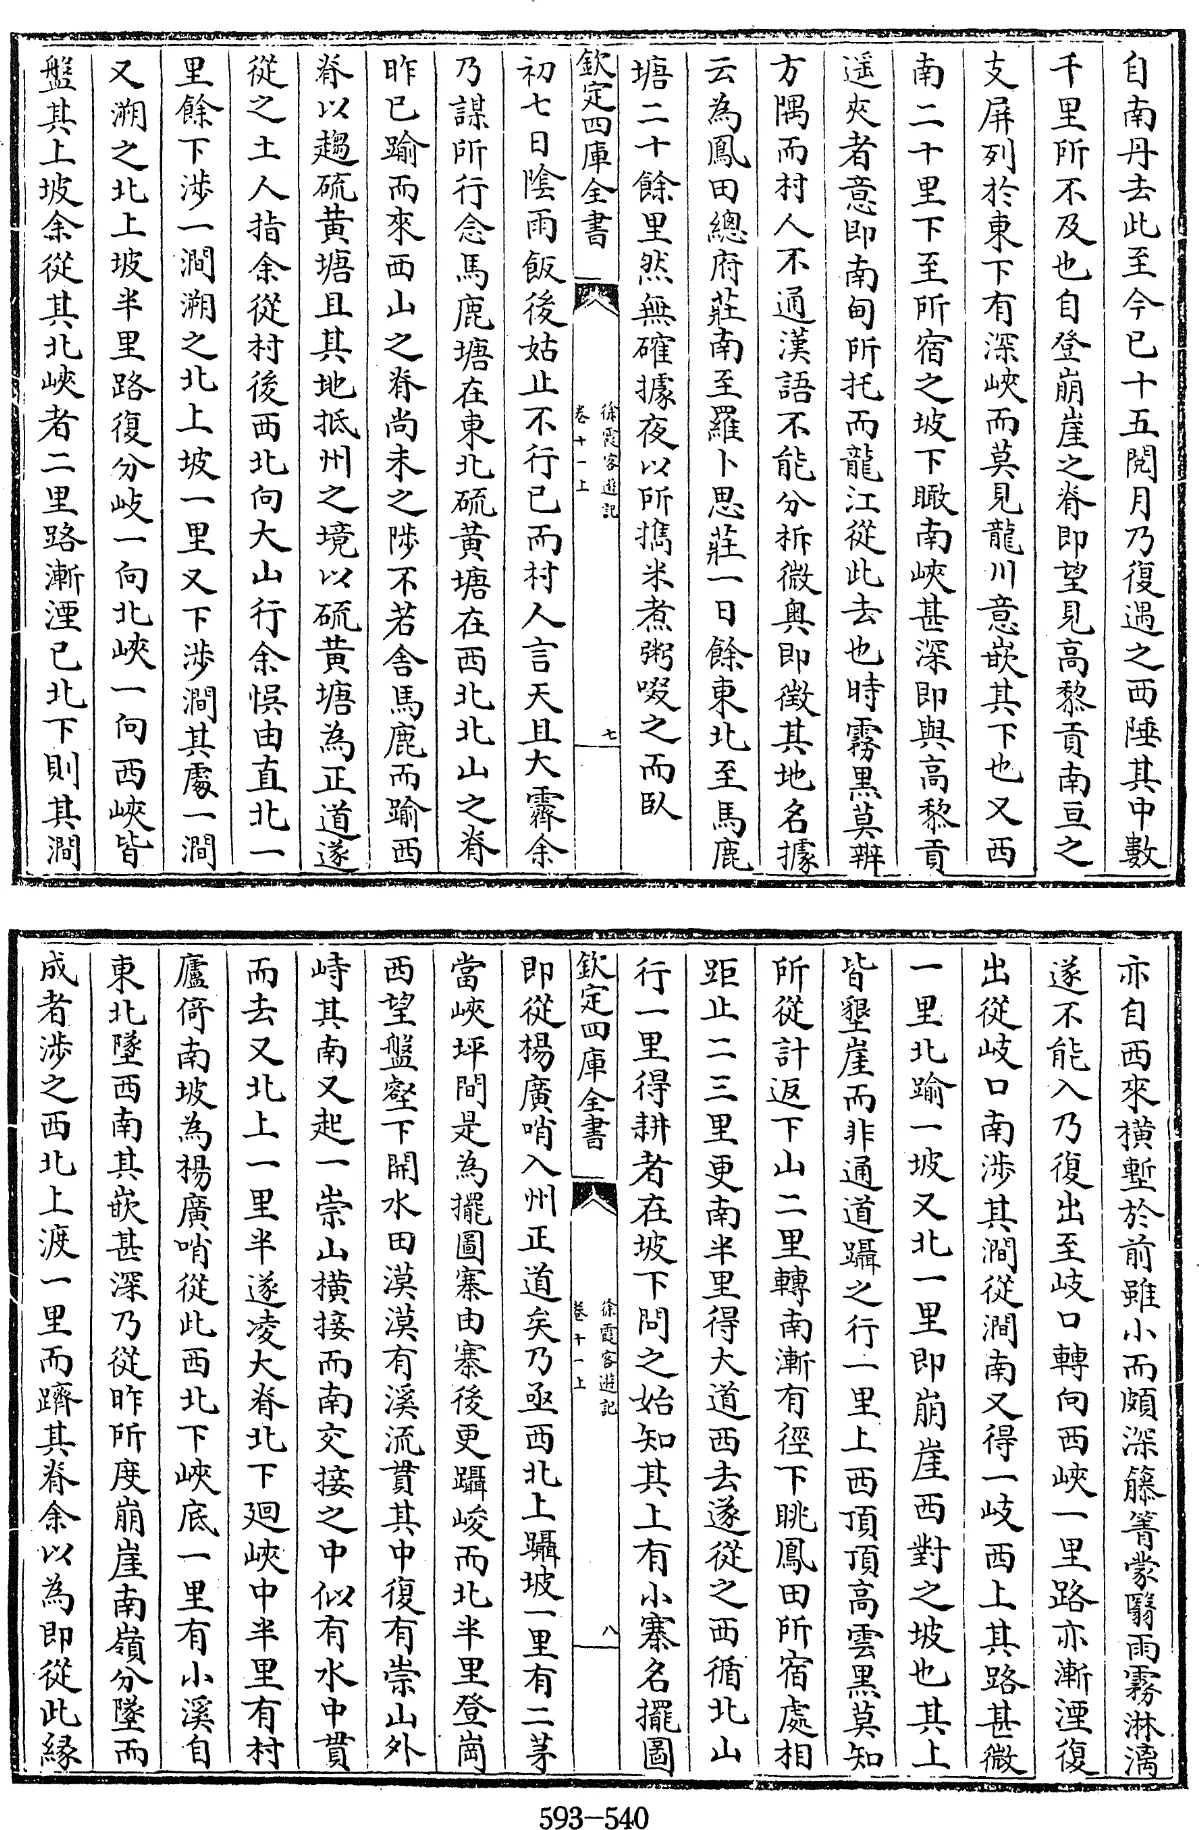 自南丹去此至今已十五閱月乃復遇之西陲其中數
千里所不及也自登崩崖之脊即望見高黎貢南亘之
支屏列於東下有深峽而莫見龍川意嵌其下也又西
南二十里下至所宿之坡下瞰南峽甚深即與高黎貢
遥夾者意即南甸所托而龍江從此去也時霧黑莫辨
方隅而村人不通漢語不能分柝微奥即徴其地名據
云為鳳田總府莊南至羅卜思莊一日餘東北至馬鹿
塘二十餘里然無確據夜以所携米煮粥啜之而臥
欽定四庫全書
徐霞客遊記
卷十一上
七
初七日陰雨飯後姑止不行已而村人言天且大霽余
乃謀所行念馬鹿塘在東北硫黄塘在西北北山之脊
昨已踰而來西山之脊尚未之陟不若舎馬鹿而踰西
脊以趨硫黄塘且其地抵州之境以硫黄塘為正道遂
從之土人指余從村後西北向大山行余悮由直北一
里餘下渉一澗溯之北上坡一里又下渉澗其處一澗
又溯之北上坡半里路復分岐一向北峽一向西峽皆
盤其上坡余從其北峽者二里路漸湮已北下則其澗
亦自西來横塹於前雖小而頗深籐箐蒙翳雨霧淋漓
遂不能入乃復出至岐口轉向西峽一里路亦漸湮復
出從岐口南渉其澗從澗南又得一岐西上其路甚微
一里北踰一坡又北一里即崩崖西對之坡也其上
皆墾崖而非通道躡之行一里上西頂頂高雲黒莫知
所從計返下山二里轉南漸有徑下眺鳳田所宿處相
距止二三里更南半里得大道西去遂從之西循北山
行一里得耕者在坡下問之始知其上有小寨名擺圖
欽定四庫全書
徐霞客遊記
卷十一上
八
即從楊廣哨入州正道矣乃亟西北上躡坡一里有二茅
當峽坪間是為擺圖寨由寨後更躡峻而北半里登崗
西望盤壑下開水田漠漠有溪流貫其中復有崇山外
峙其南又起一崇山横接而南交接之中似有水中貫
而去又北上一里半遂凌大脊北下廻峽中半里有村
廬倚南坡為楊廣哨從此西北下峽底一里有小溪自
東北墜西南其嵌甚深乃從昨所度崩崖南嶺分墜而
成者渉之西北上渡一里而躋其脊余以為即從此緣
593-540